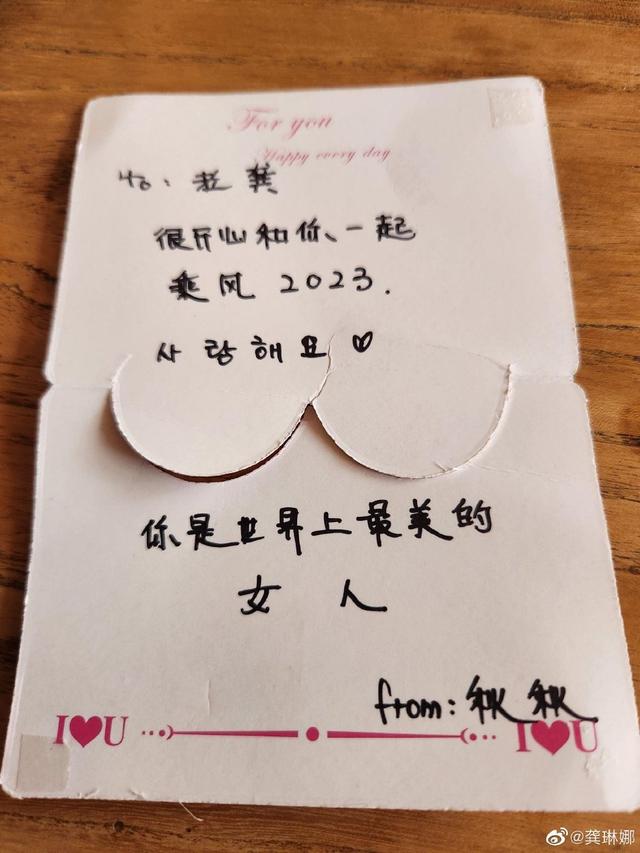 For you
Happy every day
to: 老龚
很开心和你一起
乘风 2023.
사랑해요♡
你是世界上最美的
女人
from: 秋秋
I❤U
I❤U
@龚琳娜